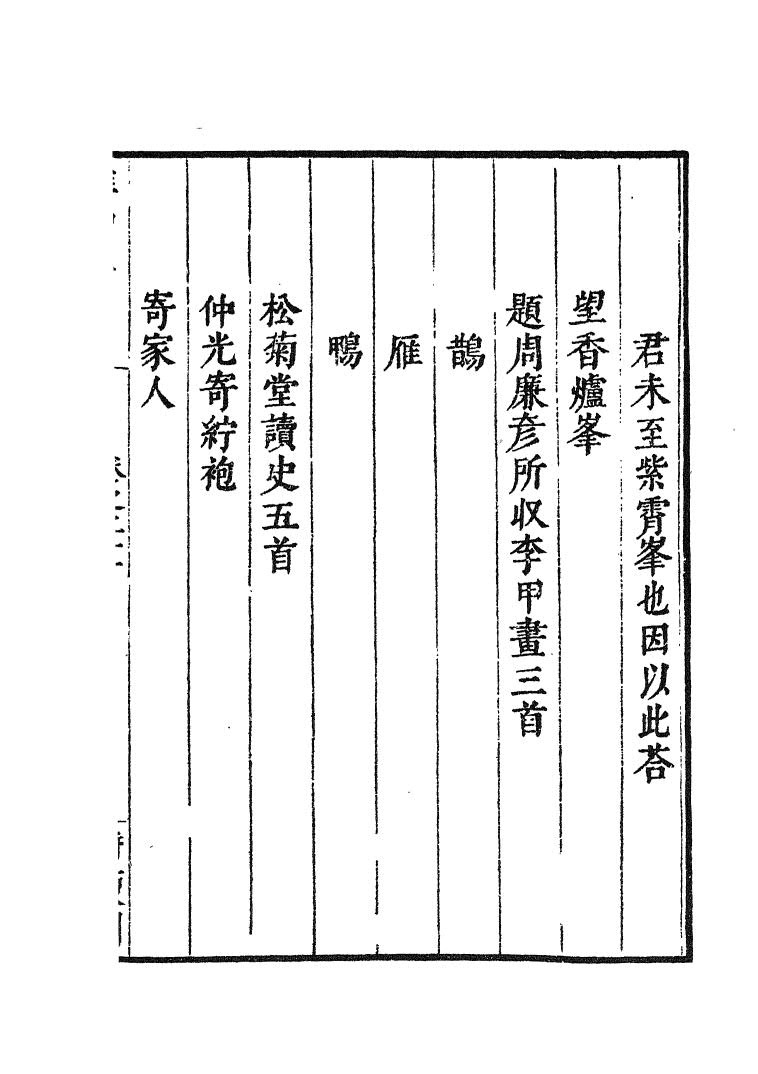 君未至紫霄峯也因以此荅
望香爐峯
題周廉彦所収李甲畫三首
鵲
雁
鴨
松菊堂讀史五首
仲光寄紵袍
寄家人